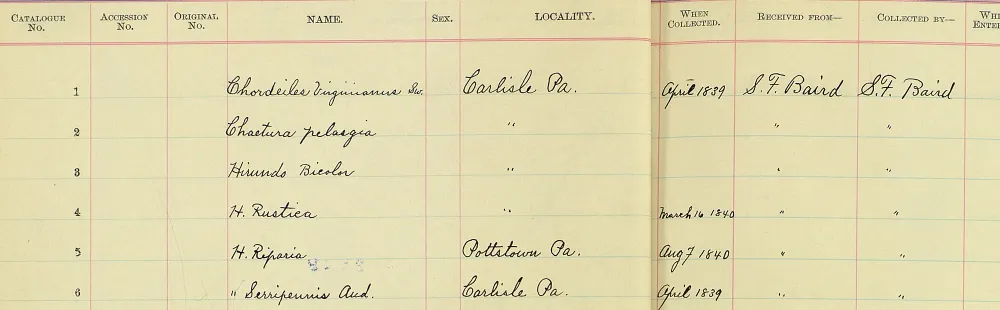 CATALOGUE No. ACCESSION No. ORIGINAL No. NAME. SEX. LOCALITY. WHEN COLLECTED. RECEIVED FROM— COLLECTED BY—
1 Chordeiles Virginianus Sw. Carlisle Pa. April 1839 S. F. Baird S. F. Baird
2 Chaetura pelasgia " " "
3 Hirundo Bicolor " " "
4 H. Rustica " March 16 1840 " "
5 H. Riparia Pottstown Pa. Aug 7 1840 " "
6 " Serripennis Aud. Carlisle Pa. April 1839 " "